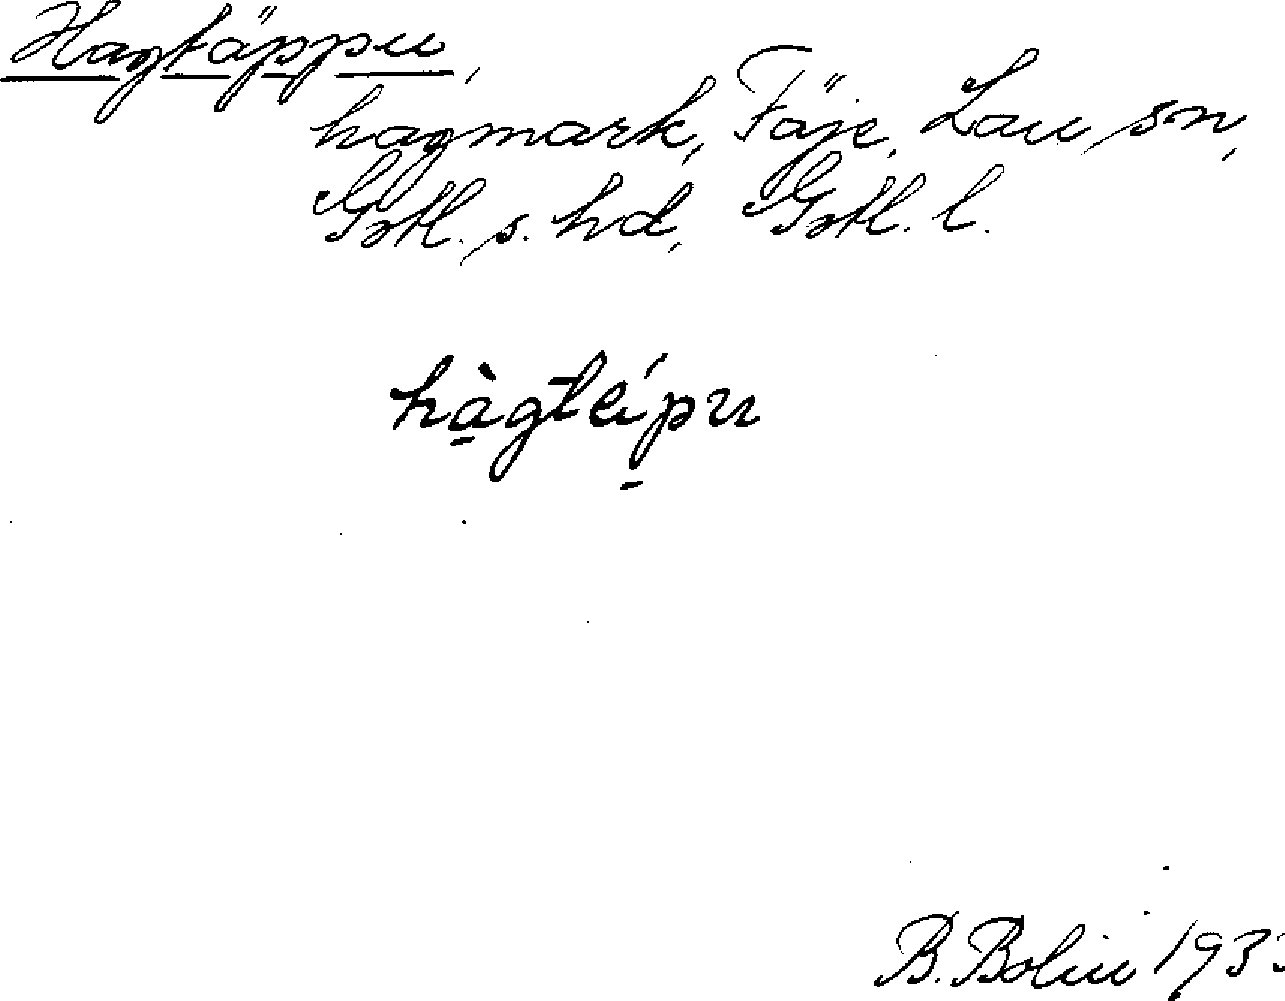 Hagtäppu,
hagmark, Fäje, Lau sn,
Gotl. s. hd, Gotl. l.
hàgtei̇́pu
B. Bolin 193